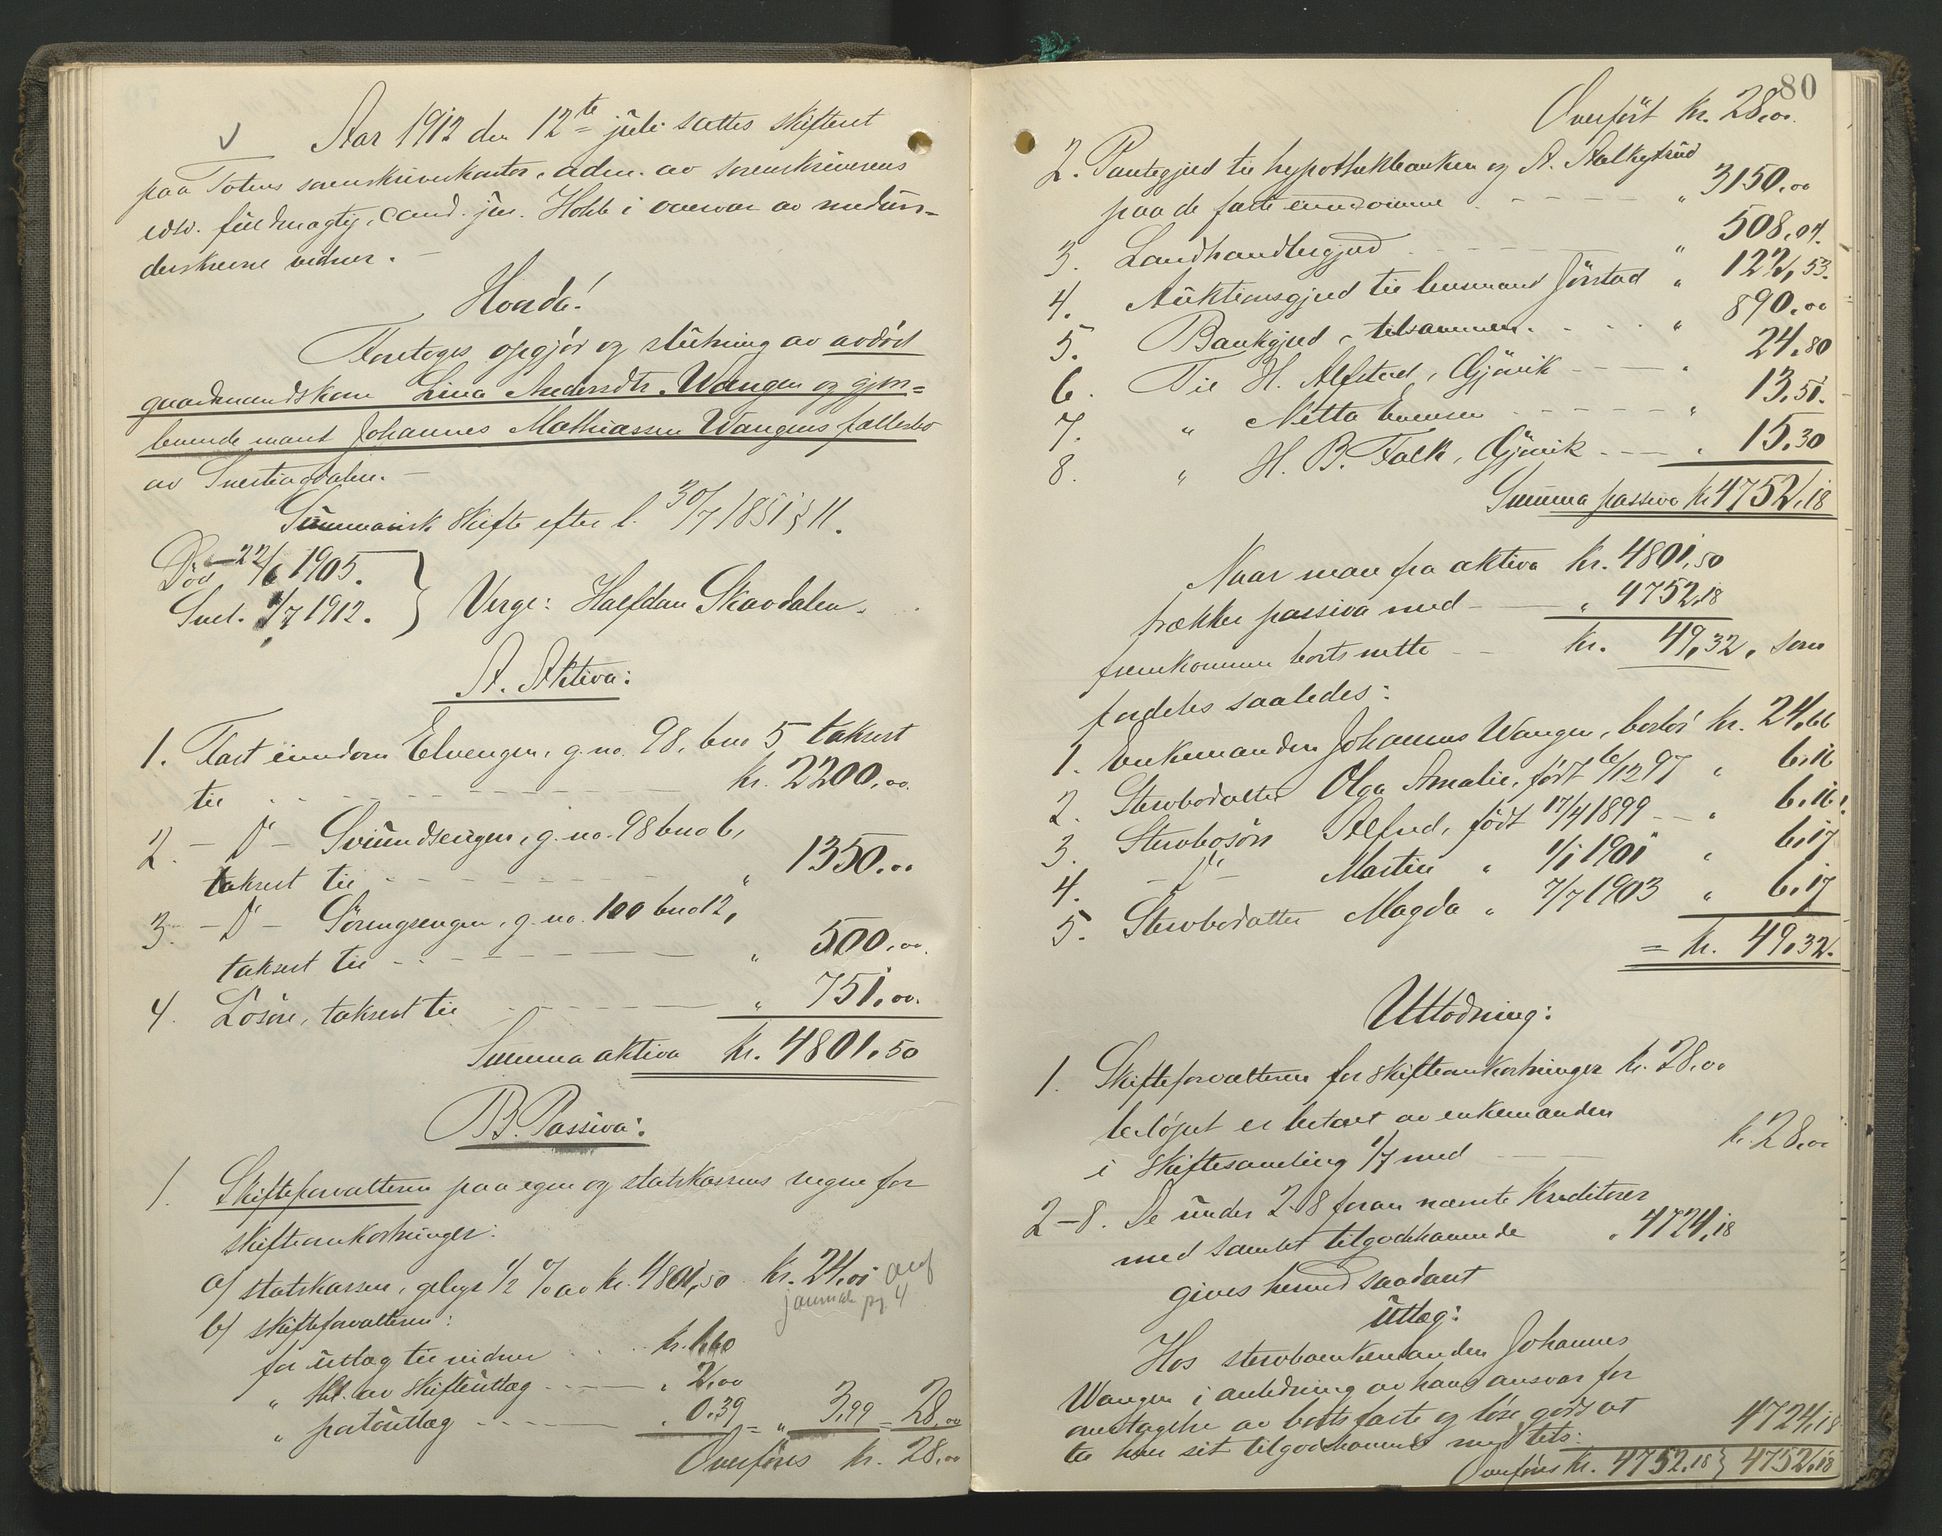 Aar 1912 den 12te juli sattes skifteret
paa Totens sorenskriverkontor, adm. av sorenskriverens
edsv. fuldmægtig, cand. jur. Holst i overvær av undert-
derskrevne vidner. —
Hvorda!
Foretoges opgjör og slutning av avdöd
gaardmandskone Lina Andersdtr. Wangen og gjen-
levende mand Johannes Mathiassen Wangens fællesbo
av Snertingdalen. —
Summarisk skifte efter l. 30/7 1851 § 11.
Död 22/6 1905.
Snel. 1/7 1912. } Verge: Halfdan Skavdalen.
A. Aktiva:
1. Fast eiendom Elvengen, g.no. 98, bno 5 takseret
til - - - kr. 2200,00.
2. - D° - Sviundsengen, g.no. 98 bno 6,
takseret til - - - " 1350,00
3. - D° - Söringsengen, g.no. 100 bno 12,
takseret til - - - " 500,00.
4. Lösöre, takseret til - - - " 751,00.
Summa aktiva kr. 4801,50
B. Passiva:
1. Skifteforvalteren paa egen og statskassens vegne for
skifteomkostninger:
a/ statskassen, gebyr 1/2 % av kr. 4801,50 kr. 24,01
journale pg. 4
b/ skifteforvalteren:
for utlæg til vidner kr. 1,60
" av skifteutlæg - - - " 2,00
" portoutlæg - - - " 0,39 = " 3,99 = 28,00
Overföres kr. 28,00
80
Overfört kr. 28,00.
2. Pantegjeld til hypothekbanken og A.
paa de faste eiendomme - - - " 3150,00
3. Landhandlergjeld - - - " 508,04.
4. Auktionsgjeld til lensmand Jörstad " 122,53.
5. Bankgjeld - tilsammen. - - - " 890,00
6. Til H. Alfstad, Gjövik - - - " 24,80
7. " Netta Evensen - - - " 13,51.
8. " H. B. Falk, Gjövik - - - " 15,30
Summa passiva kr. 4752,18
Naar man fra aktiva kr. 4801,50
trækker passiva med - - - " 4752,18
fremkommer boets netto - - - kr. 49,32, som
fordeles saaledes:
1. Enkemanden Johannes Wangen, boslod kr. 24,66
2. Stervbodatter Olga Amalie, född 6/12 97 " 6,16
3. Stervbosön Alfred, född 17/4 1899 - - " 6,16
4. - D° - Martin " 1/1 1901 " 6,17
5. Stervbodatter Magda " 7/7 1903 " 6,17
= kr. 49,32.
Utlodning:
1. Skifteforvalteren for skifteomkostninger kr. 28,00
belöpet er betalt av enkemanden
i skiftesamling 1/7 med - - - kr. 28,00
2-8. De under 2-8 foran nævnte kreditorer
med samlet tilgodehavende " 4724,18
gives herved saadant
utlæg:
Hos stervboenkemanden Johannes
Wangen i anledning av hans ansvar for
overtagelse av boets faste og löse gods at
ta hver sit tilgodehavende med tils. 4724,18
Overföres kr. 4752,18 } 4752,18